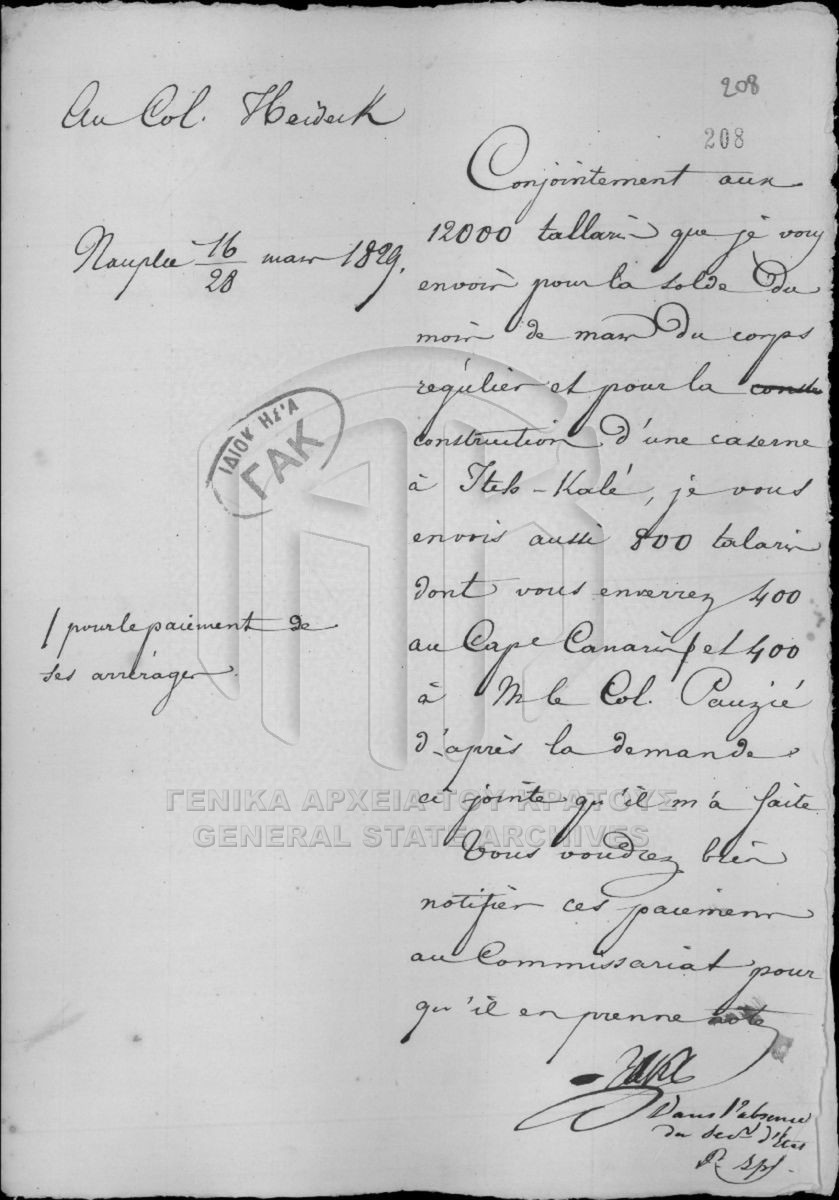 208
208
Au Col. Heideck
Nauplie 16/28 mars 1829.
Conjointement aux
12000 tallaris que je vous
envois pour la solde du
mois de mars du corps
régulier et pour la const
construction d'une caserne
à Itch-Kalé, je vous
envois aussi 800 talaris
dont vous enverrez 400
au Cape Canaris / et 400
à M le Col. Pauzié
d'après la demande
ci jointe qu'il m'a faite
Vous voudrez bien
notifier ces paiemens
au Commissariat pour
qu'il en prenne note
/ pour le paiement de
ses arrérages
Dans l'absence
du Secr. d'Etat
ΙΔΙΟΚΤΗΣΙΑ
ΓΑΚ
ΓΕΝΙΚΑ ΑΡΧΕΙΑ ΤΟΥ ΚΡΑΤΟΥΣ
GENERAL STATE ARCHIVES